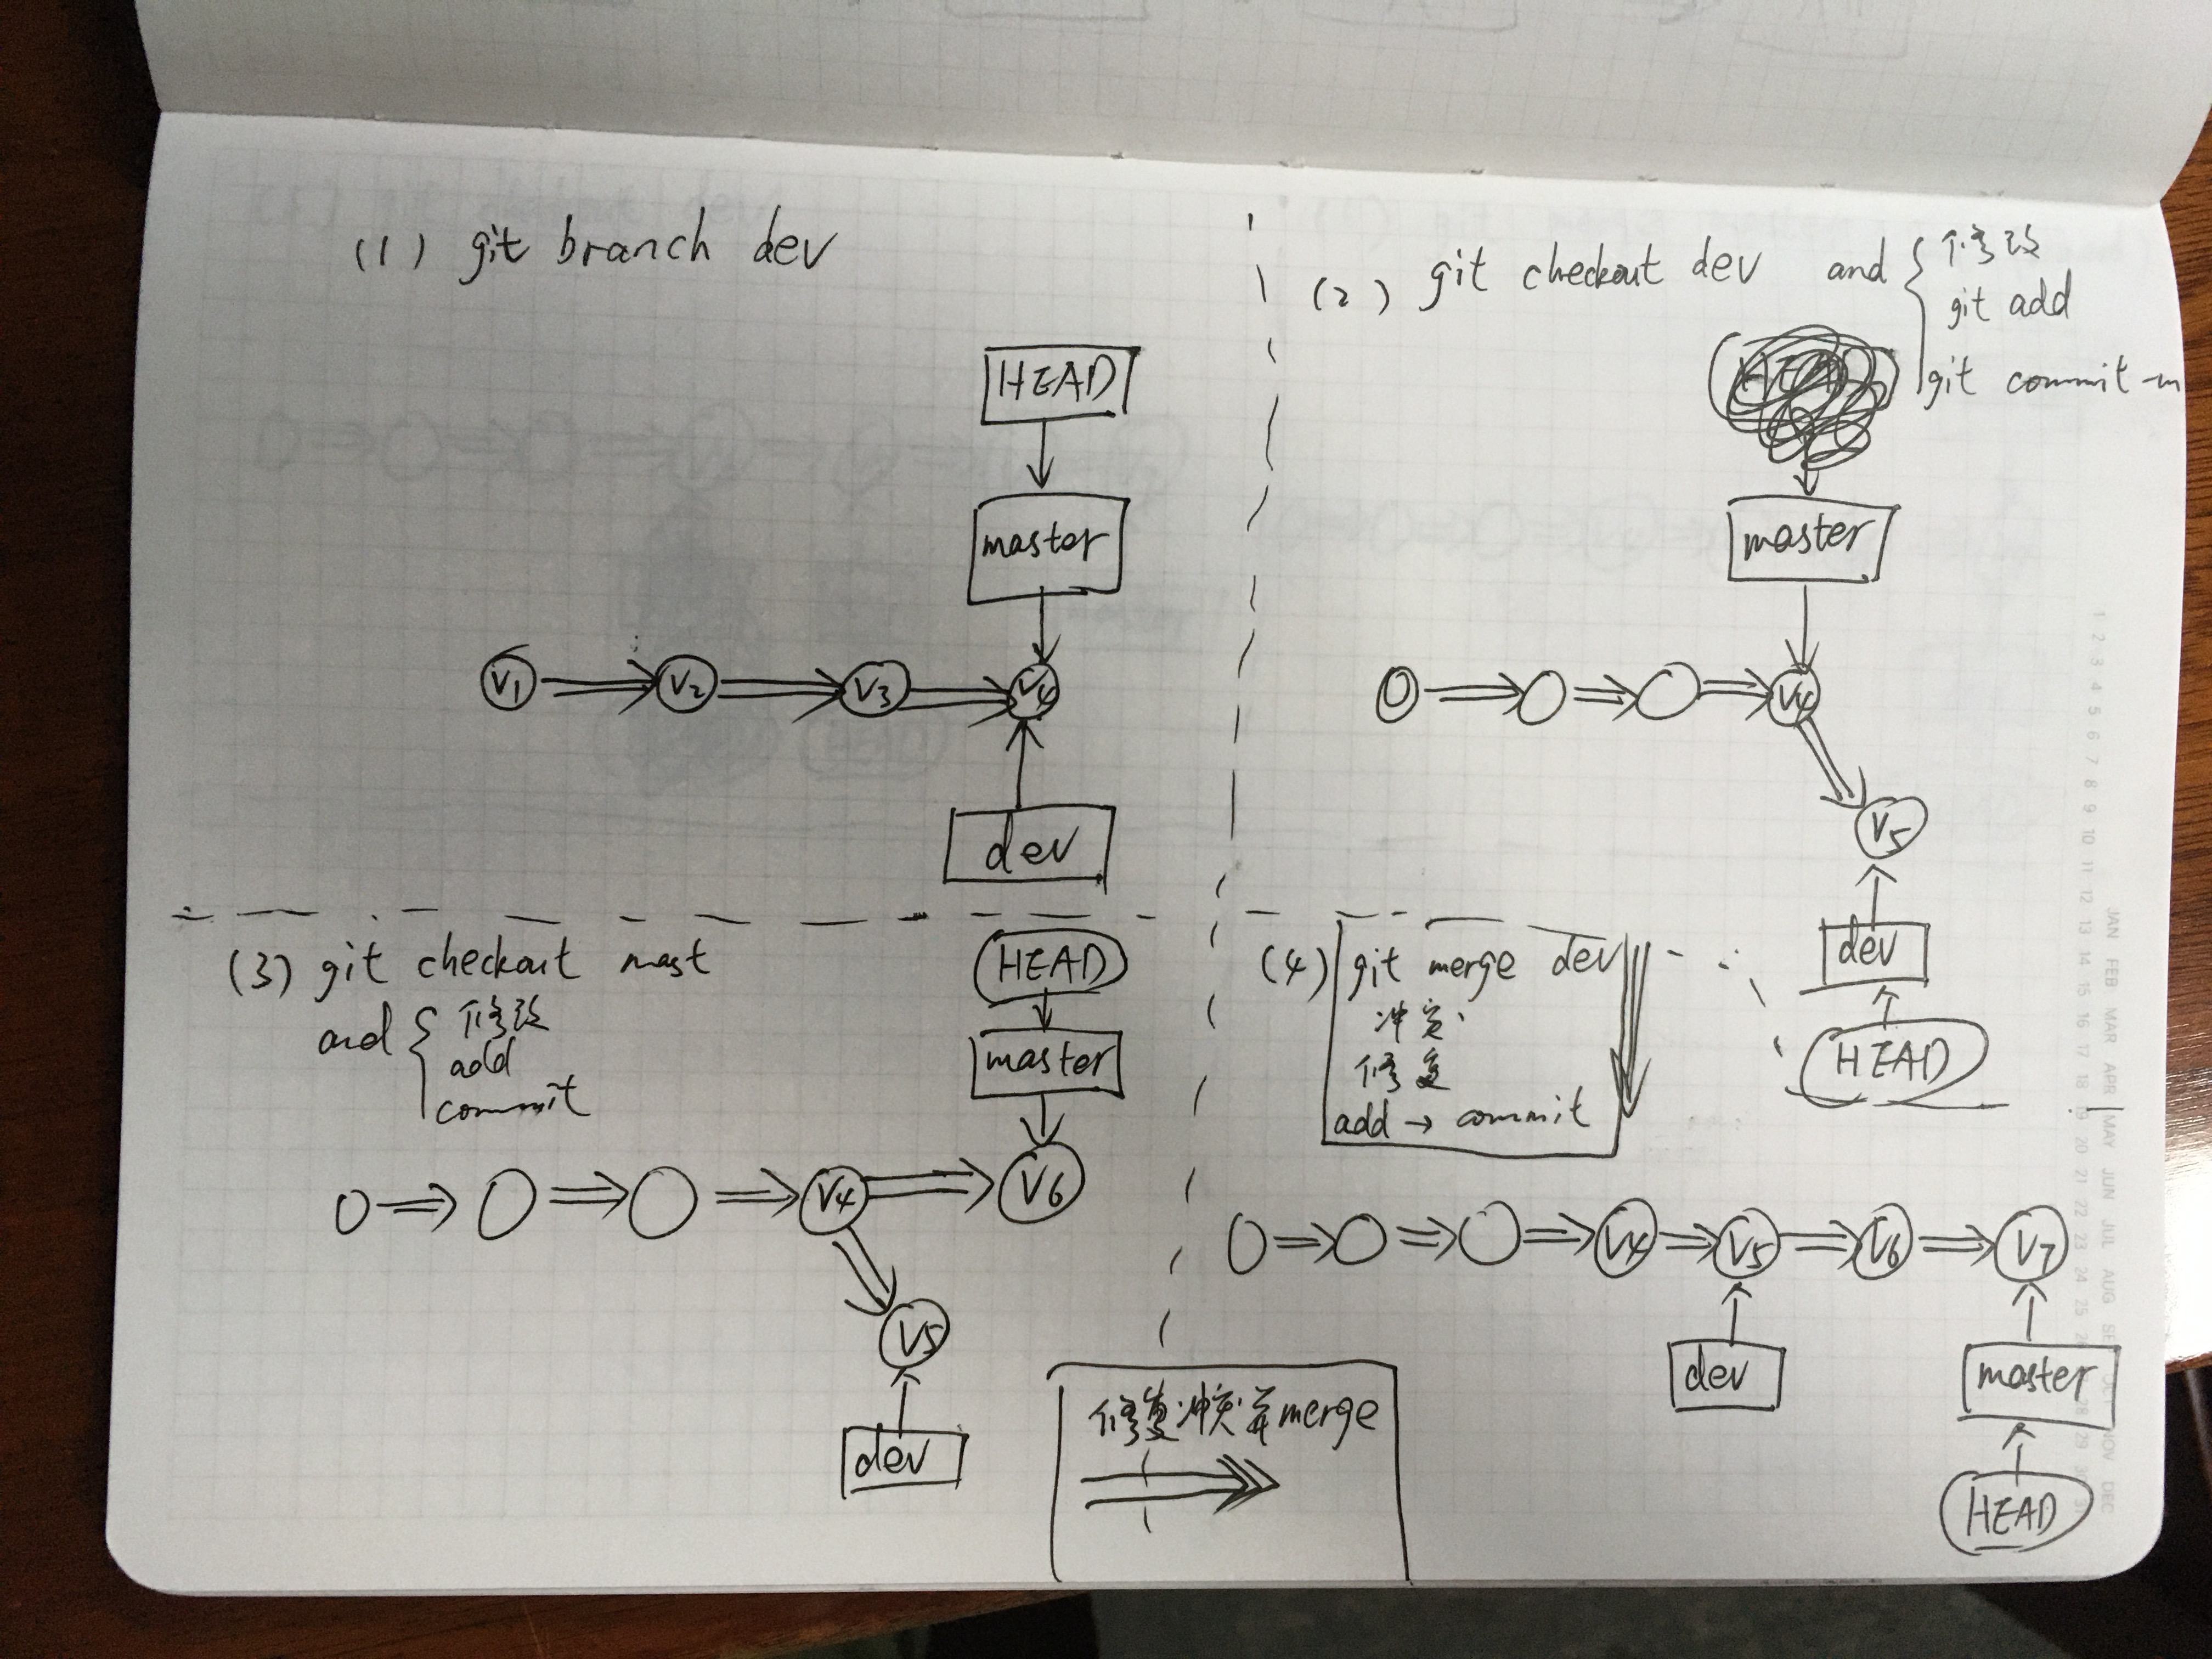 JAN FEB MAR APR MAY JUN JUL AUG SEP OCT NOV DEC
1 2 3 4 5 6 7 8 9 10 11 12 13 14 15 16 17 18 19 20 21 22 23 24 25 26 27 28 29 30 31
(1) git branch dev
HEAD
master
V1 V2 V3 V4
dev
(2) git checkout dev and
修改
git add
git commit -m
master
V4
V5
dev
HEAD
(3) git checkout mast
and
修改
add
commit
HEAD
master
V4 V6
V5
dev
(4) git merge dev
冲突
修复
add → commit
V4 V5 V6 V7
dev
master
HEAD
修复冲突并merge